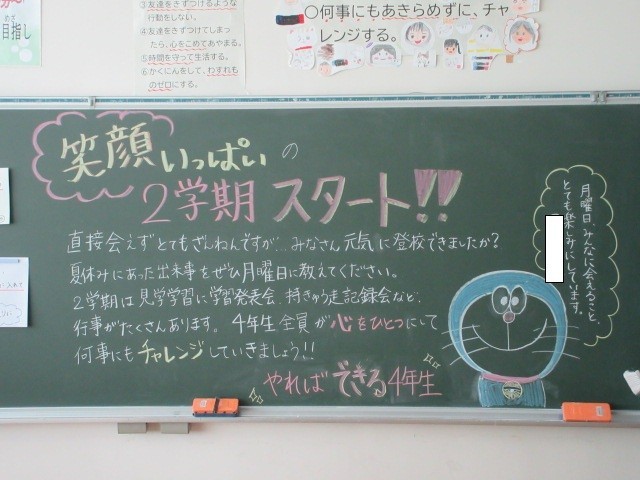 めざ
目指し
③友達をきずつけるような
行動をしない。
④友達をきずつけてしまっ
たら、心をこめてあやまる。
⑤時間を守って生活する。
⑥かくにんをして、わすれも
のゼロにする。
○何事にもあきらめずに、チャ
レンジする。
笑顔いっぱいの
2学期スタート!!
直接会えずとてもざんねんですが…みなさん元気に登校できましたか?
夏休みにあった出来事をぜひ月曜日に教えてください。
2学期は見学学習に学習発表会、持きゅう走記録会など、
行事がたくさんあります。4年生全員が心をひとつにして
何事にもチャレンジしていきましょう!!
やればできる4年生
月曜日、みんなに会えること、
とても楽しみにしています。